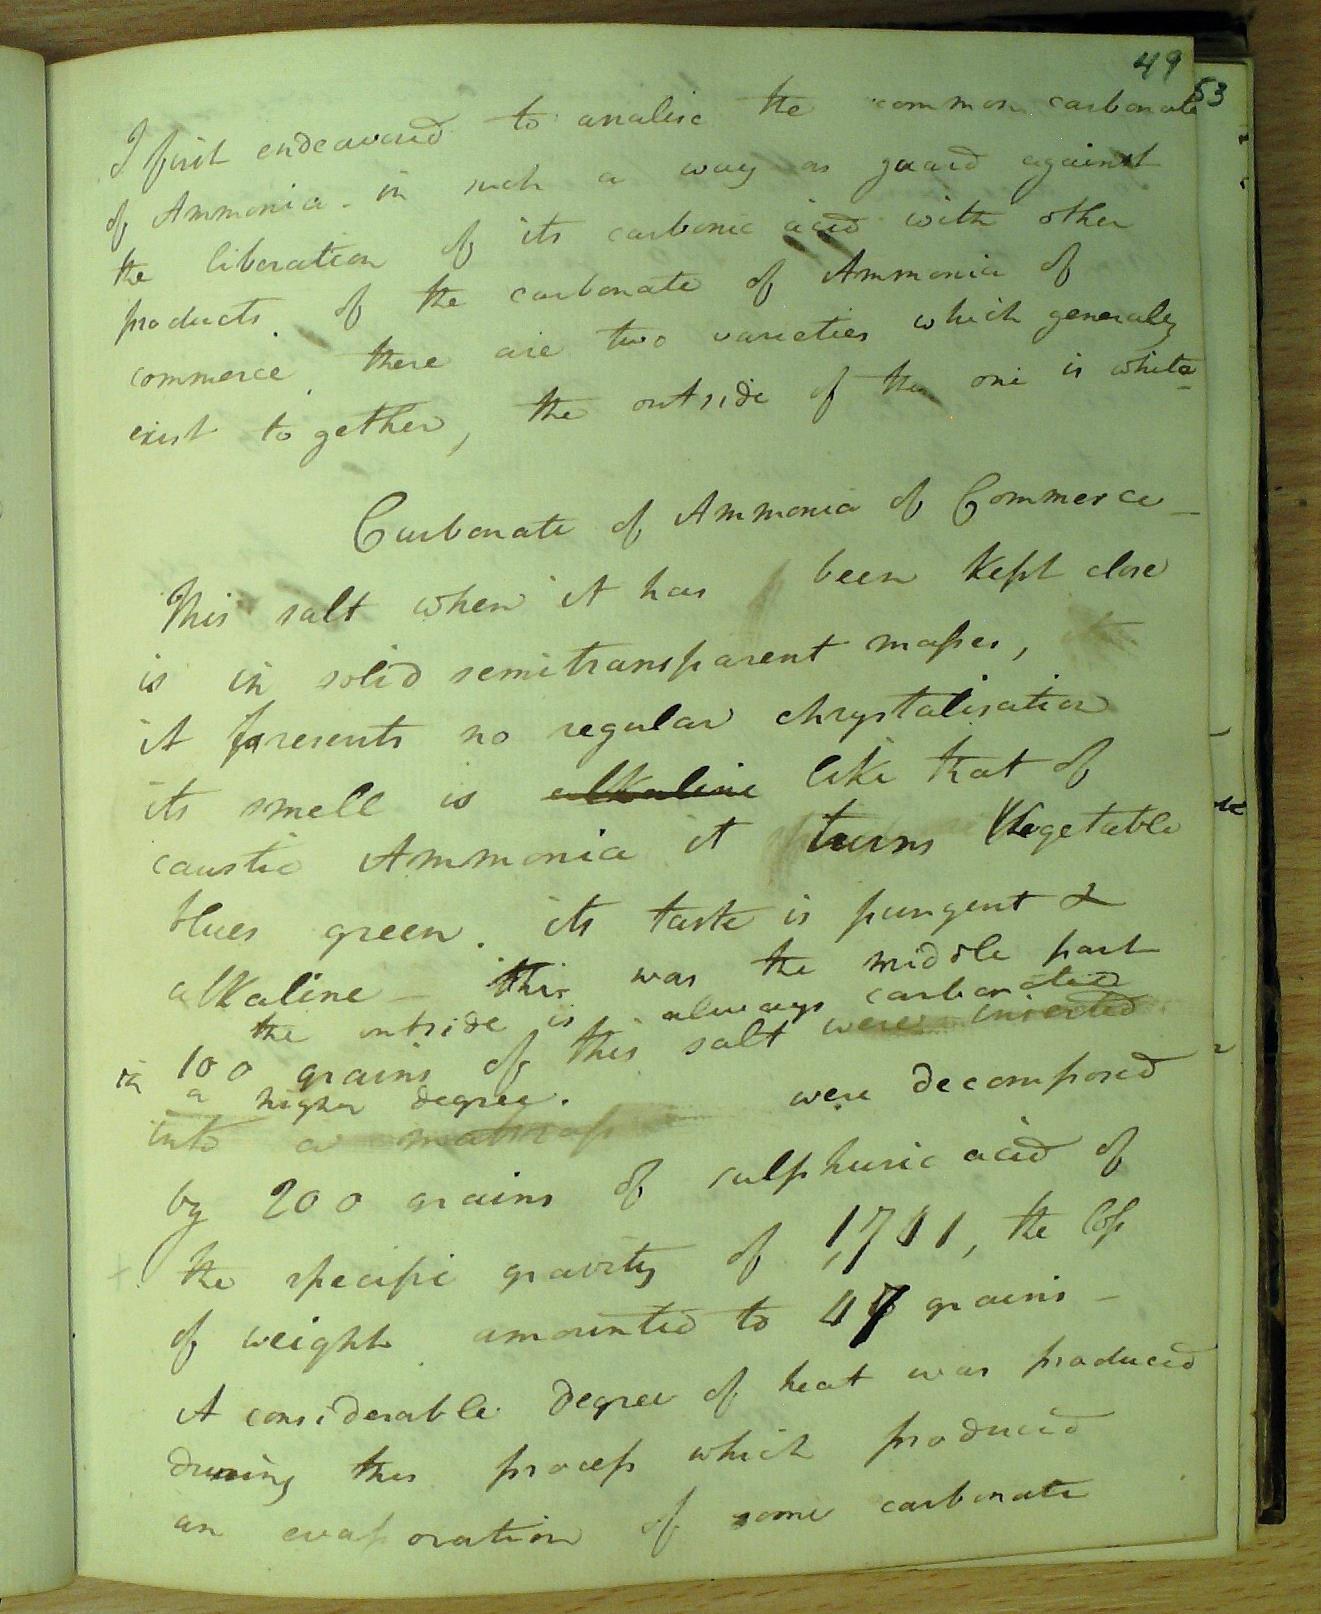 49
53
I first endeavored to analise the common carbonate
of Ammonia. in such a way as guard against
the liberation of its carbonic acid with other
products. of the carbonate of Ammonia of
commerce there are two varieties which generaly
exist together, the outside of the one is white
Carbonate of Ammonia of Commerce -
This salt when it has been kept close
is in solid semitransparent masses,
it presents no regular chrystalisation
its smell is alkaline like that of
caustic Ammonia it turns Vegetable
blues green. its taste is pungent &
alkaline - this was the middle part
the outside is always carbonated
100 grains of this salt were inserted
in a higher degree.
were decomposed
into a
by 200 grains of sulphuric acid of
the specific gravity of the loss
of weight amounted to 47 grains -
A considerable degree of heat was produced
during this process which produced
an evaporation of some carbonate